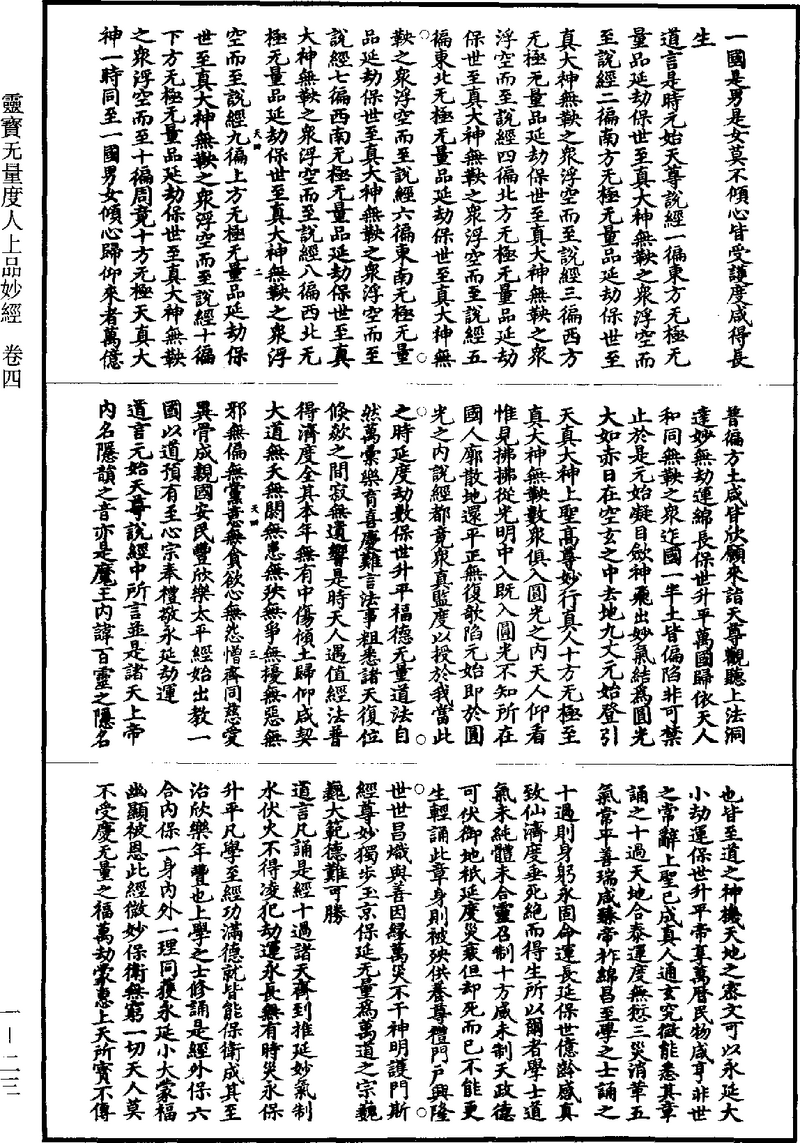 靈寶无量度人上品妙經　卷四
一國是男是女莫不傾心皆受護度咸得長
生
道言是時元始天尊說經一徧東方无極无
量品延劫保世至真大神無鞅之衆浮空而
至說經二徧南方无極无量品延劫保世至
真大神無鞅之衆浮空而至說經三徧西方
无極无量品延劫保世至真大神無鞅之衆
浮空而至說經四徧北方无極无量品延劫
保世至真大神無鞅之衆浮空而至說經五
徧東北无極无量品延劫保世至真大神無
鞅之衆浮空而至說經六徧東南无極无量
品延劫保世至真大神無鞅之衆浮空而至
說經七徧西南无極无量品延劫保世至真
大神無鞅之衆浮空而至說經八徧西北无
極无量品延劫保世至真大神無鞅之衆浮
天四　二
空而至說經九徧上方无極无量品延劫保
世至真大神無鞅之衆浮空而至說經十徧
下方无極无量品延劫保世至真大神無鞅
之衆浮空而至十徧周竟十方无極天真大
神一時同至一國男女傾心歸仰來者萬億
普徧方土咸皆欣願來詣天尊觀聽上法洞
達妙無劫運綿長保世升平萬國歸依天人
和同無鞅之衆迮國一半土皆偏陷非可禁
止於是元始凝目歛神飛出妙氣結爲圓光
大如赤日在空玄之中去地九丈元始登引
天真大神上聖高尊妙行真人十方无極至
真大神無鞅數衆俱入圓光之內天人仰看
惟見拂拂從光明中入既入圓光不知所在
國人廓散地還平正無復欹陷元始即於圓
光之內說經都竟衆真監度以授於我當此
之時延度劫數保世升平福德无量道法自
然萬彙樂育喜慶難言法事粗悉諸天復位
倐欻之間寂無遺響是時天人遇值經法普
得濟度全其本年無有中傷傾土歸仰咸契
大道無夭無閼無患無殃無爭無擾無惡無
天四　三
邪無偏無黨意無貪欲心無恚憎齊同慈愛
異骨成親國安民豐欣樂太平經始出教一
國以道預有至心宗奉禮敬永延劫運
道言元始天尊說經中所言並是諸天上帝
內名隱韻之音亦是魔王內諱百靈之隱名
也皆至道之神機天地之寶文可以永延大
小劫運保世升平帝享萬曆民物咸亨非世
之常辭上聖已成真人通玄究微能悉其章
誦之十過天地合泰運度無愆三災消蕐五
氣常平善瑞咸臻帝祚綿昌至學之士誦之
十過則身躬永固命運長延保世億齡感真
致仙濟度垂死絕而得生所以爾者學士道
氣未純體未合靈召制十方威未制天政德
可伏御地祇延度災衰但却死而已不能更
生輕誦此章身則被殃供養尊禮門戶興隆
世世昌熾與善因緣萬災不干神明護門斯
經尊妙獨步玉京保延无量爲萬道之宗巍
巍大範德難可勝
道言凡誦是經十過諸天齊到推延妙氣制
水伏火不得凌犯劫運永長無有時災永保
升平凡學至經功滿德就皆能保衛成其至
治欣樂年豐也上學之士修誦是經外保六
合內保一身內外一理同獲永延小大蒙福
幽顯被恩此經微妙保衛無窮一切天人莫
不受慶无量之福萬劫蒙惠上天所寶不傳
一—二三